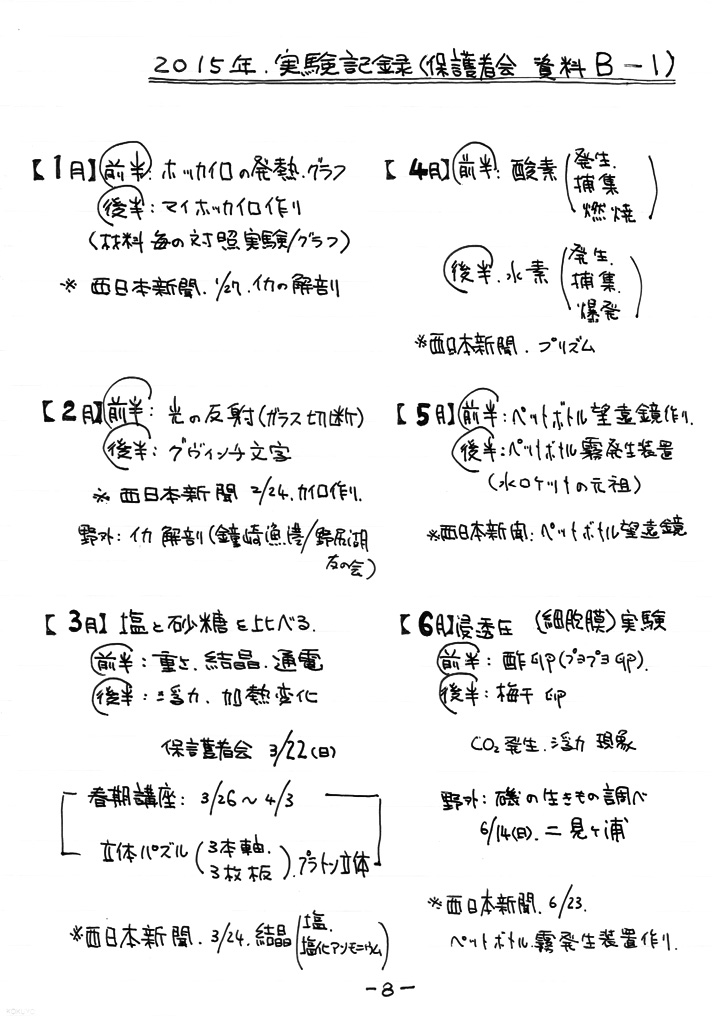 2015年.実験記録(保護者会 資料B-1)
【1月】前半:ホッカイロの発熱.グラフ
後半:マイホッカイロ作り
(材料毎の対照実験/グラフ)
※ 西日本新聞.1/27.イカの解剖
【2月】前半:光の反射(ガラス切断)
後半:ダヴィンチ文字
※ 西日本新聞 2/24.カイロ作り.
野外:イカ解剖(鐘崎漁港/野尻湖
友の会)
【3月】塩と砂糖を比べる.
前半:重さ.結晶.通電
後半:浮力.加熱変化
保護者会 3/22(日)
春期講座:3/26〜4/3
立体パズル(3本軸.
3枚板).プラトン立体
※西日本新聞.3/24.結晶(塩.
塩化アンモニウム)
【4月】前半:酸素(発生.
捕集
燃焼)
後半.水素(発生.
捕集
爆発)
※西日本新聞.プリズム
【5月】前半:ペットボトル望遠鏡作り.
後半:ペットボトル霧発生装置
(水ロケットの元祖)
※西日本新聞:ペットボトル望遠鏡
【6月】浸透圧 (細胞膜)実験
前半:酢卵(プヨプヨ卵).
後半:梅干卵
CO₂発生.浮力現象
野外:磯の生きもの調べ
6/14(日).二見ヶ浦
※西日本新聞.6/23.
ペットボトル.霧発生装置作り.
-8-